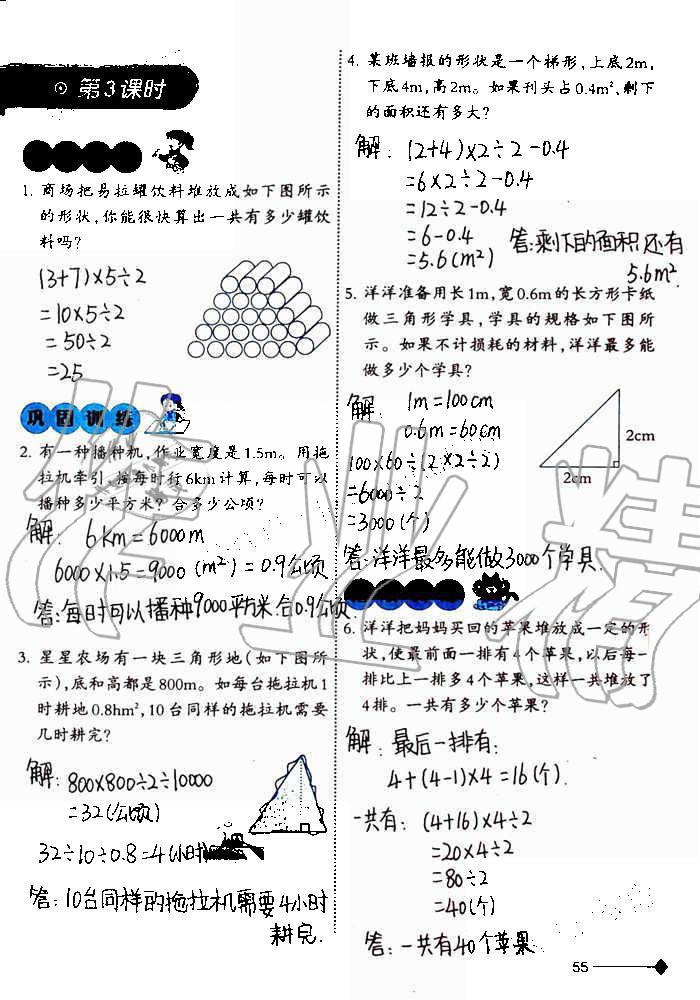 第3课时
1. 商场把易拉罐饮料堆放成如下图所示
的形状,你能很快算出一共有多少罐饮
料吗?
(3+7)×5÷2
=10×5÷2
=50÷2
=25
巩固训练
2. 有一种播种机,作业宽度是1.5m。用拖
拉机牵引,按每时行6km计算,每时可以
播种多少平方米? 合多少公顷?
解: 6km=6000m
6000×1.5=9000(m²)=0.9公顷
答:每时可以播种9000平方米合0.9公顷
3. 星星农场有一块三角形地(如下图所
示),底和高都是800m。如每台拖拉机1
时耕地0.8hm²,10台同样的拖拉机需要
几时耕完?
解: 800×800÷2÷10000
=32(公顷)
32÷10÷0.8=4(小时)
答:10台同样的拖拉机需要4小时
耕完.
4. 某班墙报的形状是一个梯形,上底2m,
下底4m,高2m。如果刊头占0.4m²,剩下
的面积还有多大?
解: (2+4)×2÷2-0.4
=6×2÷2-0.4
=12÷2-0.4
=6-0.4
=5.6(m²)
答:剩下的面积还有
5.6m²
5. 洋洋准备用长1m,宽0.6m的长方形卡纸
做三角形学具,学具的规格如下图所
示。如果不计损耗的材料,洋洋最多能
做多少个学具?
解: 1m=100cm
0.6m=60cm
100×60÷(2×2÷2)
=6000÷2
=3000(个)
2cm
2cm
答:洋洋最多能做3000个学具.
6. 洋洋把妈妈买回的苹果堆放成一定的形
状,使最前面一排有4个苹果,以后每一
排比上一排多4个苹果,这样一共堆放了
4排。一共有多少个苹果?
解: 最后一排有:
4+(4-1)×4=16(个).
一共有: (4+16)×4÷2
=20×4÷2
=80÷2
=40(个)
答: 一共有40个苹果
55
作业精